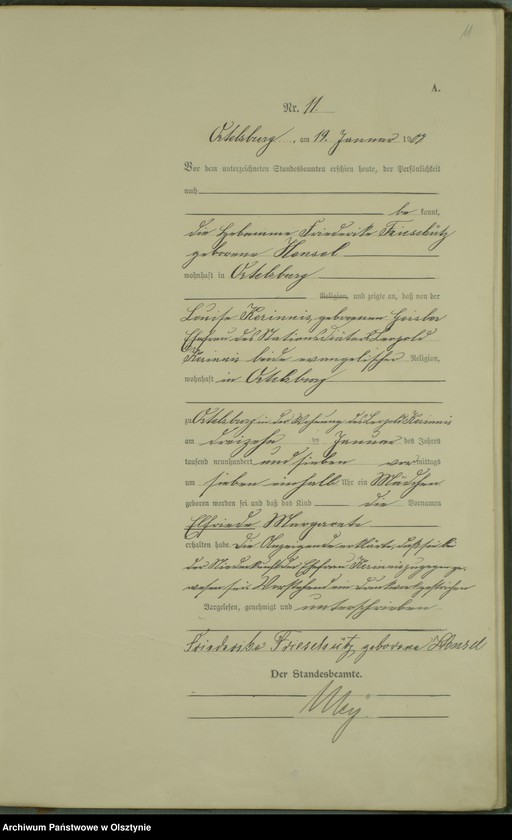 11
A.
Nr. 11
Ortelsburg, am 19. Januar 1907
Vor dem unterzeichneten Standesbeamten erschien heute, der Persönlichkeit
nach
be kannt,
die Hebamme Friederike Frieschütz
geborene Hensel
wohnhaft in Ortelsburg
Religion, und zeigte an, daß von der
Louise Kerinnis, geborenen
Ehefrau des Leopold
Kerinnis beide evangelischer Religion,
wohnhaft in Ortelsburg
zu Ortelsburg in der Wohnung des Leopold Kerinnis
am dreizehn ten Januar des Jahres
tausend neunhundert und sieben vor mittags
um sieben einhalb Uhr ein Mädchen
geboren worden sei und daß das Kind die Vornamen
Elfriede Margarete
erhalten habe. Die Anzeigende erklärte, daß sie bei
der Niederkunft der Ehefrau Kerinnis zugegen ge-
wesen sei. Vorstehend ein Druckwort gestrichen
Vorgelesen, genehmigt und unterschrieben
Friederike Frieschütz, geborene Hensel
Der Standesbeamte.
Archiwum Państwowe w Olsztynie